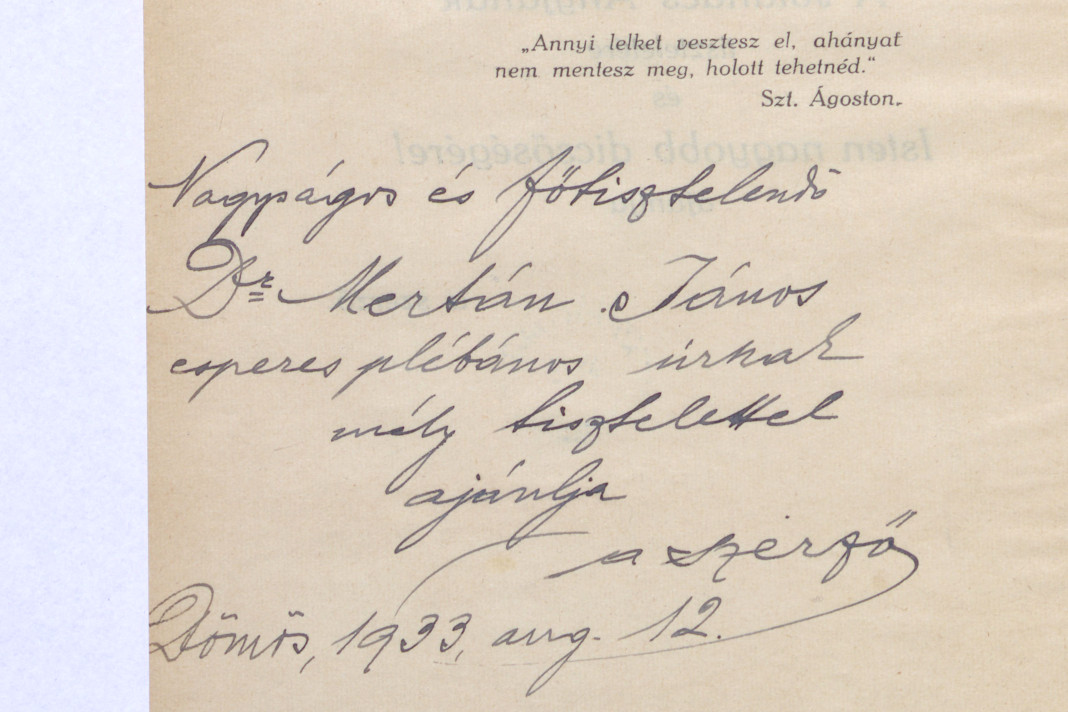 „Annyi lelket vesztesz el, ahányat
nem mentesz meg, holott tehetnéd.“
Szt. Ágoston.
Nagyságos és főtisztelendő
Dr. Mertán János
esperes plébános úrnak
mély tisztelettel
ajánlja
a szerző
Dömös, 1933, aug. 12.